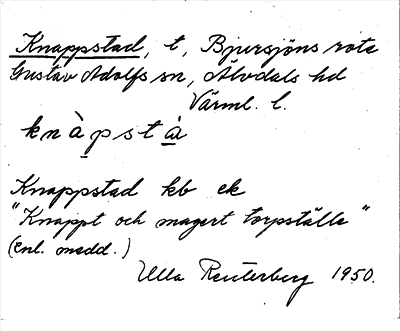 Knappstad, t, Bjursjöns rote
Gustav Adolfs sn, Älvdals hd
Värml. l.
knàpstà
Knappstad kb ek
"Knappt och magert torpställe"
(enl. medd.)
Ulla Reuterberg 1950.